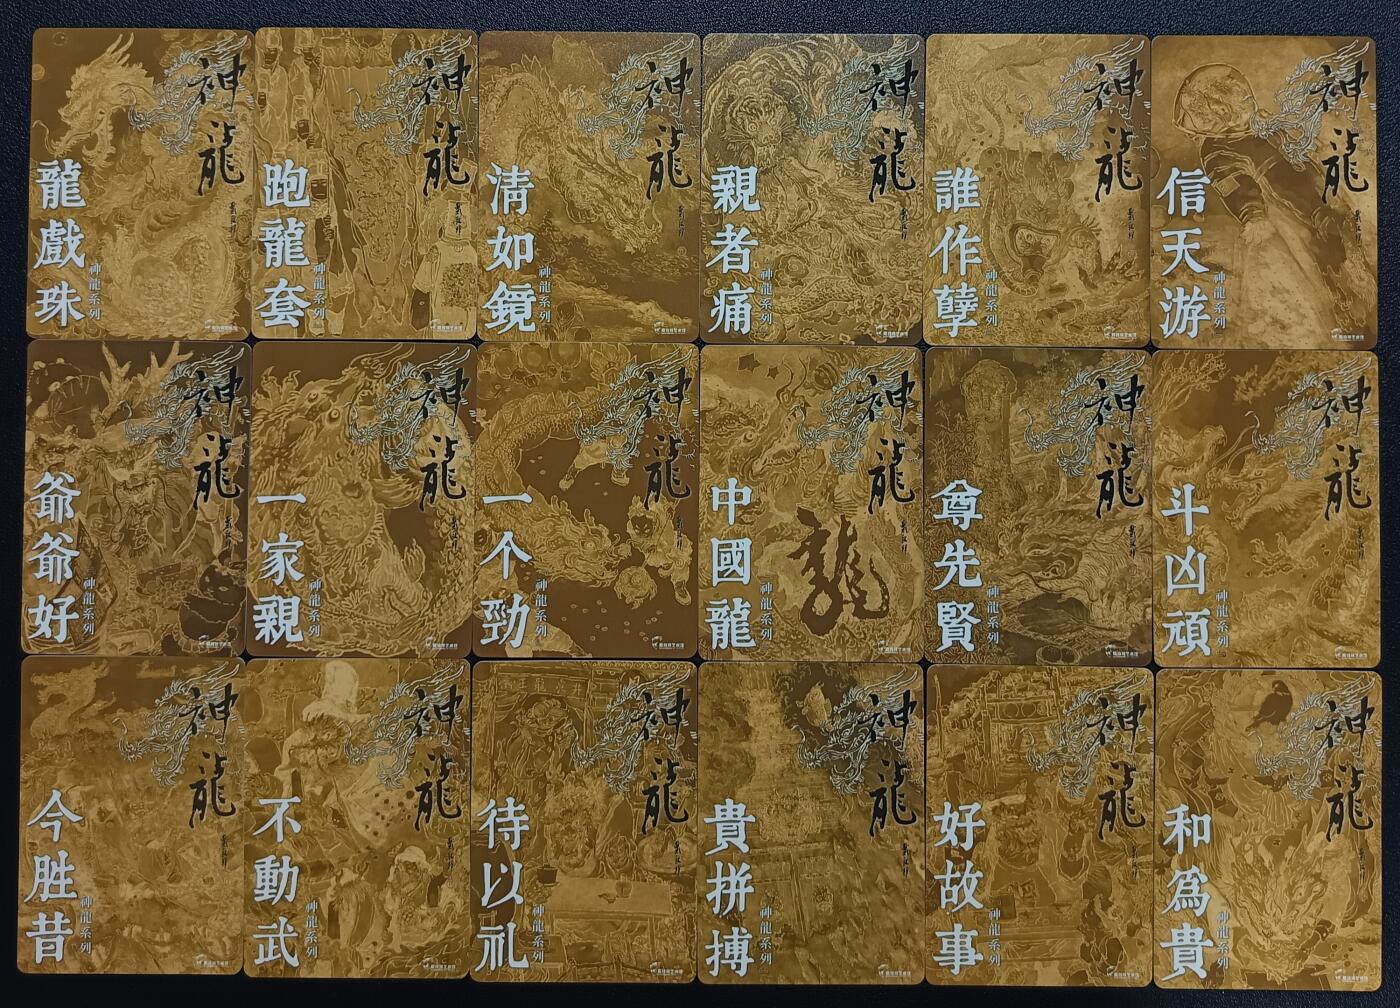 神龍
龍戲珠
神龍系列
神龍
跑龍套
神龍系列
神龍
清如鏡
神龍系列
神龍
親者痛
神龍系列
神龍
誰作孽
神龍系列
神龍
信天游
神龍系列
神龍
爺爺好
神龍系列
神龍
一家親
神龍系列
神龍
一个勁
神龍系列
神龍
中國龍
龍
神龍系列
神龍
尊先賢
神龍系列
神龍
斗凶頑
神龍系列
神龍
今胜昔
神龍系列
神龍
不動武
神龍系列
神龍
待以礼
神龍系列
神龍
貴拼搏
神龍系列
神龍
好故事
神龍系列
神龍
和為貴
神龍系列